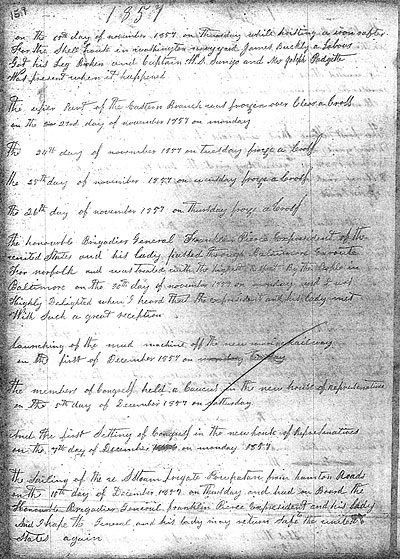 1857
on the 10th day of november 1857 on Thursday while hoisting a iron rafter
For the Shell House in washington navy yard James Buckly a Labour
Got his Leg Broken and Captain H.S. and Mr Joseph Padgett
Was present when it happened
The upper Part of the Eastern Branch was frozen over Clear a Cross
on the 23rd day of november 1857 on monday
The 24th day of november 1857 on tuesday froze a Cross
the 25th day of november 1857 on froze a Cross
the 26th day of november 1857 on Thursday froze a Cross
The honourable Brigadier General Franklin Pierce Expresident of the
united States and his lady passed through Baltimore Enroute
For norfolk and was treated with the highest respect By the People in
Baltimore on the 30th day of november 1857 on monday and I was
Highly Delighted when I heard that the expresident and his lady met
With Such a great reception
Launching of the mud machine off the new railway
on the first of December 1857 on
the members of Congress held a Caucus in the new house of Representatives
on the 5th day of December 1857 on Saturday
And the first Setting of Congress in the new house of Representatives
on the 7th day of December on monday 1857
the Sailing of the Steam frigate Powhatan from hampton Roads
on the 10th day of December 1857 on Thursday and had on Board the
Honourable Brigadier General franklin Pierce Expresident and his lady
And I hope the General and his lady may return Safe to the united
States again